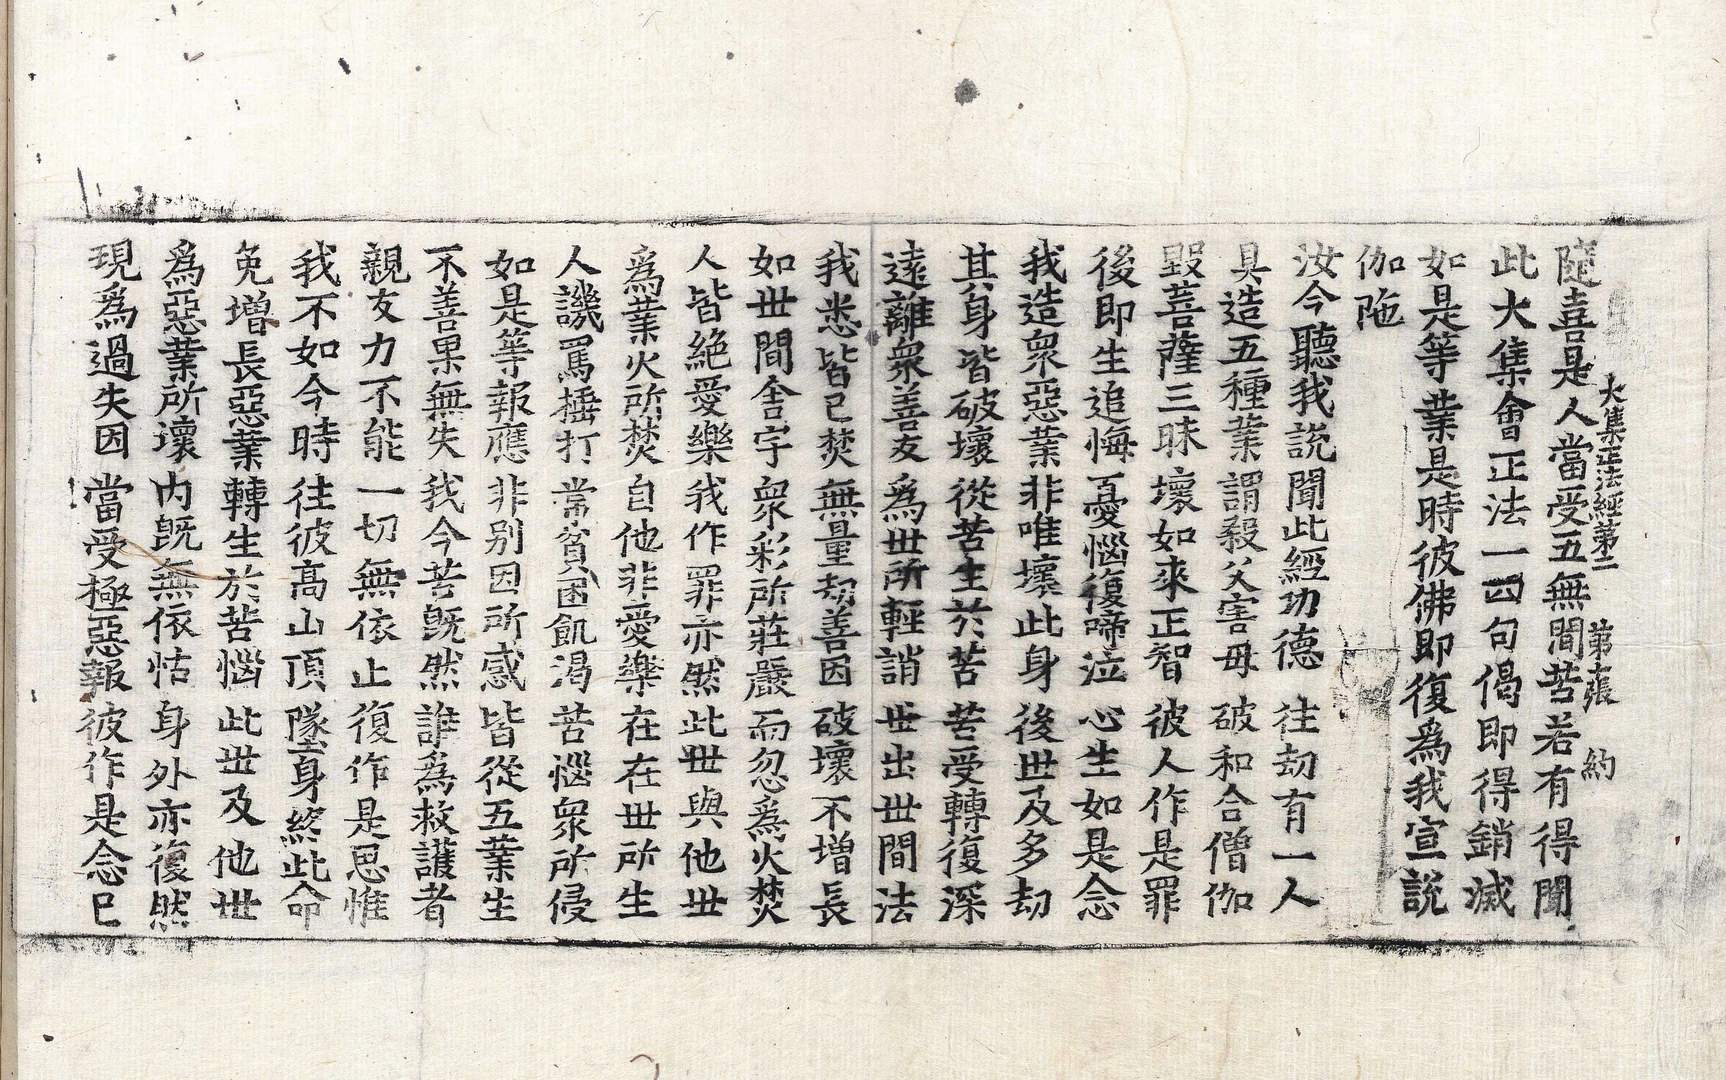 大集正法經第二 第七張 約
隨喜是人當受五無間苦若有得聞
此大集會正法一四句偈即得銷滅
如是等業是時彼佛即復爲我宣說
伽陁
汝今聽我説聞此經功德往劫有一人
具造五種業謂殺父害母破和合僧伽
毀菩薩三昧壞如來正智彼人作是罪
後即生追悔憂惱復啼泣心生如是念
我造衆惡業非唯壞此身後世及多劫
其身皆破壞從苦生於苦苦受轉復深
遠離衆善友爲世所輕誚世出世間法
我悉皆已焚無量劫善因破壞不增長
如世間舍宇衆彩所莊嚴而忽爲火焚
人皆絶愛樂我作罪亦然此世與他世
爲業火所焚自他非愛樂在在世所生
人譏罵捶打常貧困飢渴苦惱衆所侵
如是等報應非别因所感皆從五業生
不善果無失我今苦既然誰爲救護者
親友力不能一切無依止復作是思惟
我不如今時往彼高山頂墜身終此命
免增長惡業轉生於苦惱此世及他世
爲惡業所壞内既無依怙身外亦復然
現爲過失因當受極惡報彼作是念已